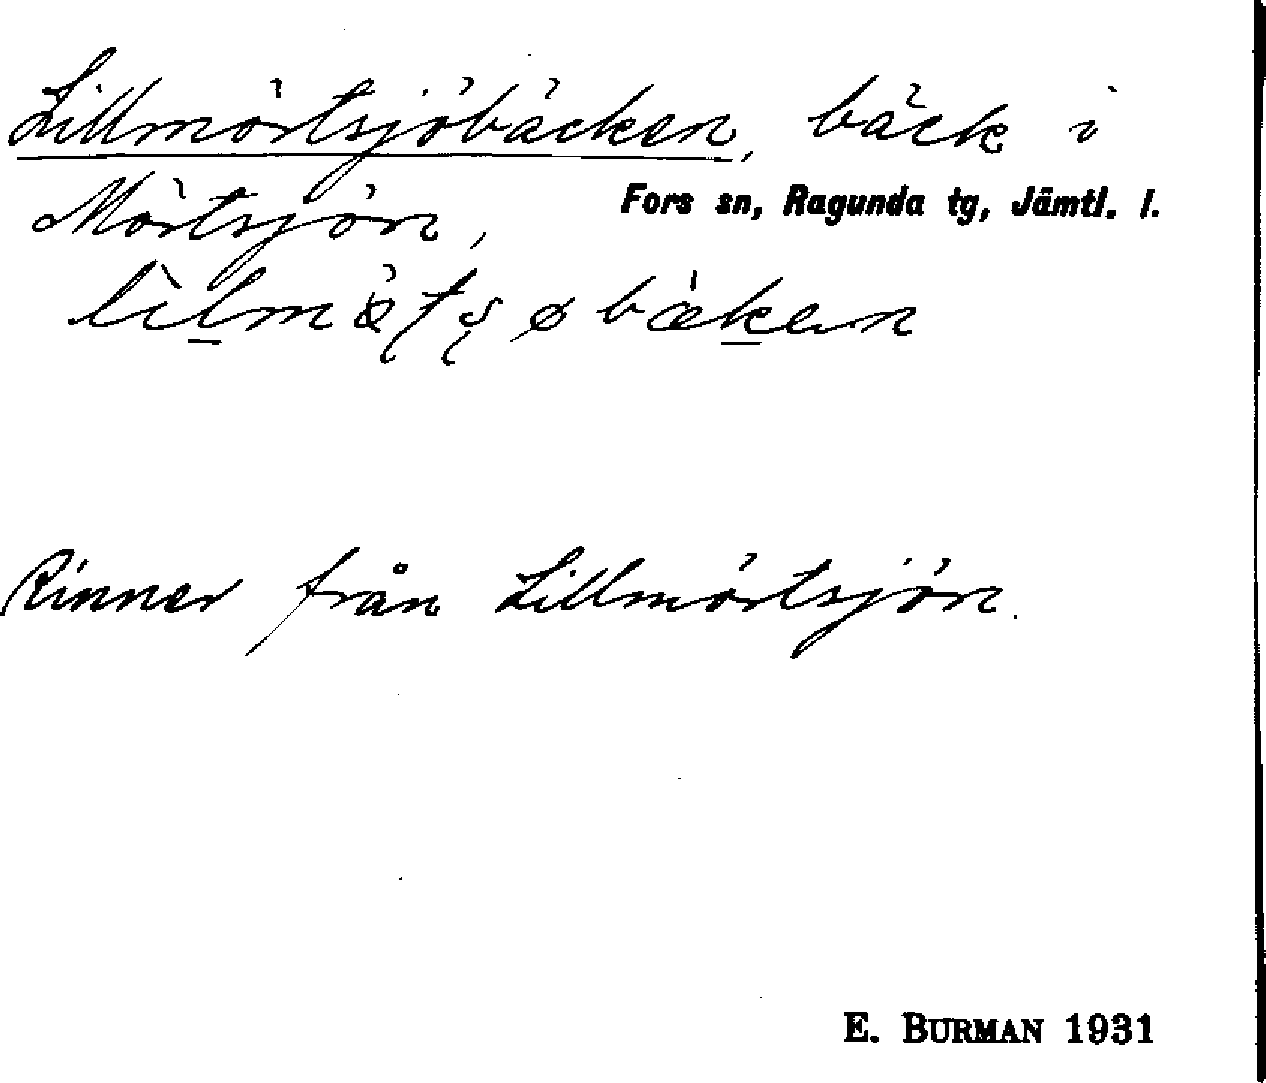 Lillmörtsjöbäcken, bäck i
Mörtsjön,
Fors sn, Ragunda tg, Jämtl. l.
Rinner från Lillmörtsjön.
E. BURMAN 1931